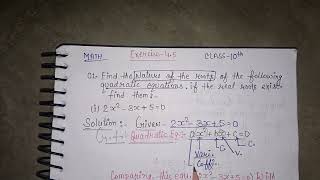 MATH Exercise-4.5 CLASS-10th
Q1. Find the Natures of the roots of the following
quadratic equations. if the real roots exist
find them:-
(i) 2x²-3x+5=0
Solution:- Given- 2x²-3x+5=0
Quadratic Eqn= ax²+bx+c=0
C.
Vari. C V.
Coffi.
Comparing this equ. 2x²-3x+5=0